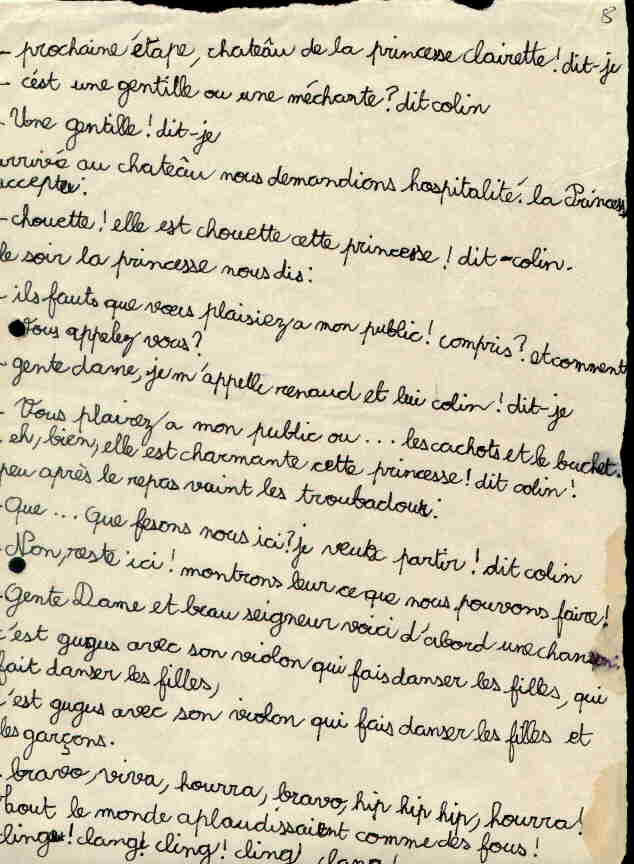 8
- prochaine étape, chateâu de la princesse clairette! dit-je
- cést une gentille ou une méchante? dit colin
- Une gentille! dit-je
arrivé au chateâu nous demandions hospitalité. la Princess
accepter:
- chouette! elle est chouette cette princesse! dit-colin.
le soir la princesse nous dis:
- ils fauts que vous plaisiez a mon public! compris? et comment
Vous appelez vous?
- gente dame, je m'appelle renaud et lui colin! dit-je
- Vous plairez a mon public ou... les cachots et le buchet.
- eh, bien, elle est charmante cette princesse! dit colin!
peu après le repas vaint les troubadour:
- Que... Que fesons nous ici? je veux partir! dit colin
- Non, reste ici! montrons leur ce que nous pouvons faire!
- Gente Dame et beau seigneur voici d'abord une chanson:
c'est gugus avec son violon qui fais danser les filles, qui
fait danser les filles,
c'est gugus avec son violon qui fais danser les filles et
les garçons.
- bravo, viva, hourra, bravo, hip hip hip, hourra!
tout le monde aplaudissaient comme des fous!
cling! clang! cling! cling! clang!